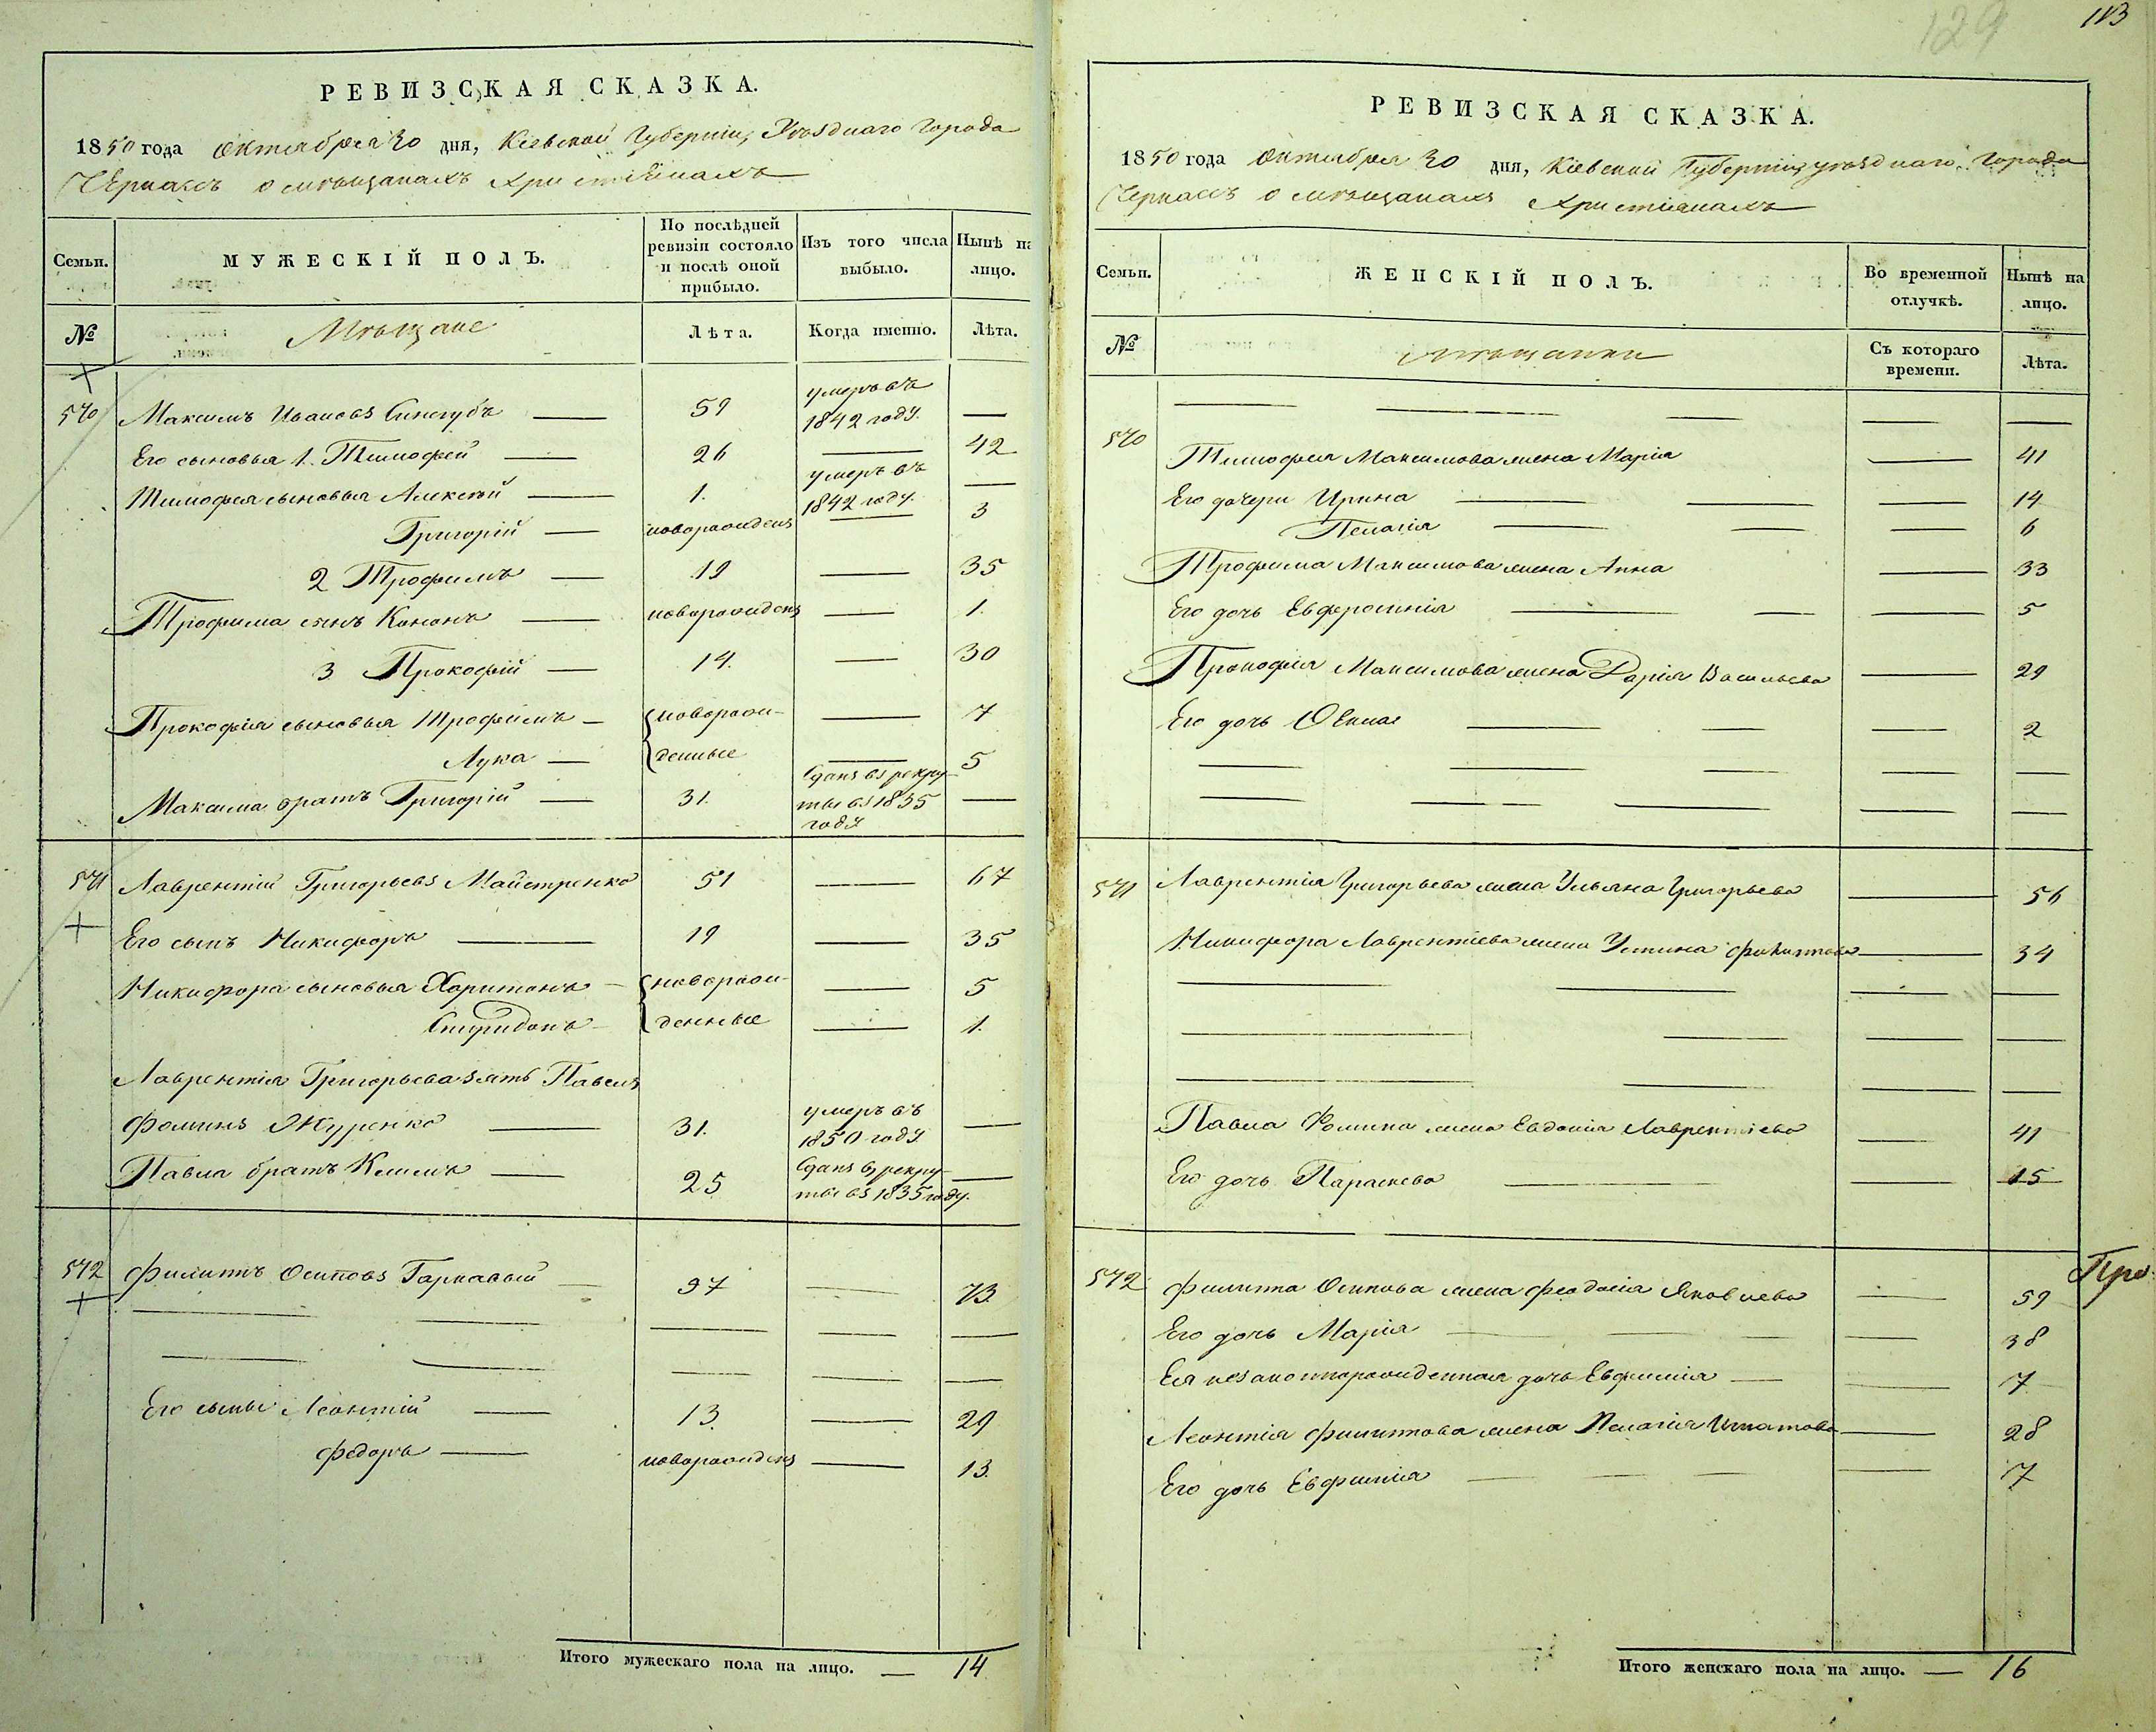 113
129
РЕВИЗСКАЯ СКАЗКА.
1850 года октября 30 дня, Кіевской Губерніи, Уѣзднаго Города
Черкасъ о мѣщанахъ христіянахъ
Семьи.
МУЖЕСКІЙ ПОЛЪ.
По послѣдней ревизіи состояло и послѣ оной прибыло.
Изъ того числа выбыло.
Нынѣ на лицо.
№
Мѣщане
Лѣта.
Когда именно.
Лѣта.
570 Максимъ Ивановъ Синегубъ — 59 умеръ въ 1842 году. —
Его сыновья 1. Тимофей — 26 — 42
Тимофея сыновья Алексѣй — 1. умеръ въ 1842 году. —
Григорій — новорожденъ — 3
2 Трофимъ — 19 — 35
Трофима сынъ Кононъ — новорожденъ — 1.
3 Прокофій — 14. — 30
Прокофія сыновья Трофимъ — новорож- — 7
Лука — денные — 5
Максима братъ Григорій — 31. Сданъ въ рекру-ты въ 1835 году —
571 Лаврентій Григорьевъ Майстренко 51 — 67
Его сынъ Никифоръ — 19 — 35
Никифора сыновья Харитонъ — новорож- — 5
Спиридонъ — денные — 1.
Лаврентія Григорьева зять Павелъ
Фоминъ Журенко — 31. умеръ въ 1850 году —
Павла братъ Климъ — 25 Сданъ въ рекру-ты въ 1835 году. —
572 Филиппъ Осиповъ Гаркавый — 97 — 73.
Его сыны Леонтій — 13. — 29
Федоръ — новорожденъ — 13.
Итого мужескаго пола на лицо. — 14
РЕВИЗСКАЯ СКАЗКА.
1850 года октября 30 дня, Кіевской Губерніи, уѣзднаго Города
Черкасъ о мѣщанахъ христіянахъ
Семьи.
ЖЕНСКІЙ ПОЛЪ.
Во временной отлучкѣ.
Нынѣ на лицо.
№
мѣщанки
Съ котораго времени.
Лѣта.
570 Тимофея Максимова жена Марія — 41
Его дочери Ирина — 14
Пелагія — 6
Трофима Максимова жена Анна — 33
Его дочь Евфросинія — 5
Прокофія Максимова жена Дарія Васильева — 29
Его дочь — 2
571 Лаврентія Григорьева жена Ульяна Григорьева — 56
Никифора Лаврентіева жена Устина Филиппова — 34
Павла Фомина жена Евдокія Лаврентіева — 41
Его дочь Параскева — 15
572 Филиппа Осипова жена Феодосія Яковлева — 59
Его дочь Марія — 38
Ея незаконнорожденная дочь Евфимія — 7
Леонтія Филиппова жена Пелагія Игнатова — 28
Его дочь Евфимія — 7
Про
Итого женскаго пола на лицо. — 16